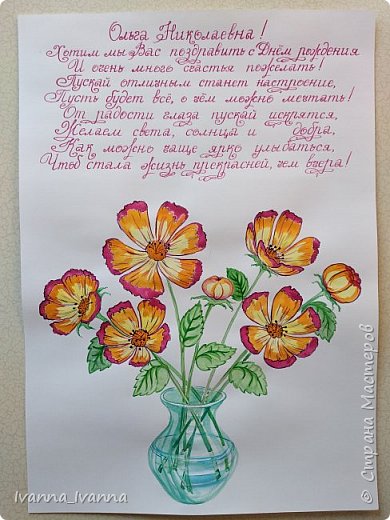 Ольга Николаевна!
Хотим мы Вас поздравить с Днём рождения
И очень много счастья пожелать!
Пускай отличным станет настроение,
Пусть будет всё, о чём можно мечтать!
От радости глаза пускай искрятся,
Желаем света, солнца и добра,
Как можно чаще ярко улыбаться,
Чтоб стала жизнь прекрасней, чем вчера!
© Страна Мастеров
Ivanna_Ivanna